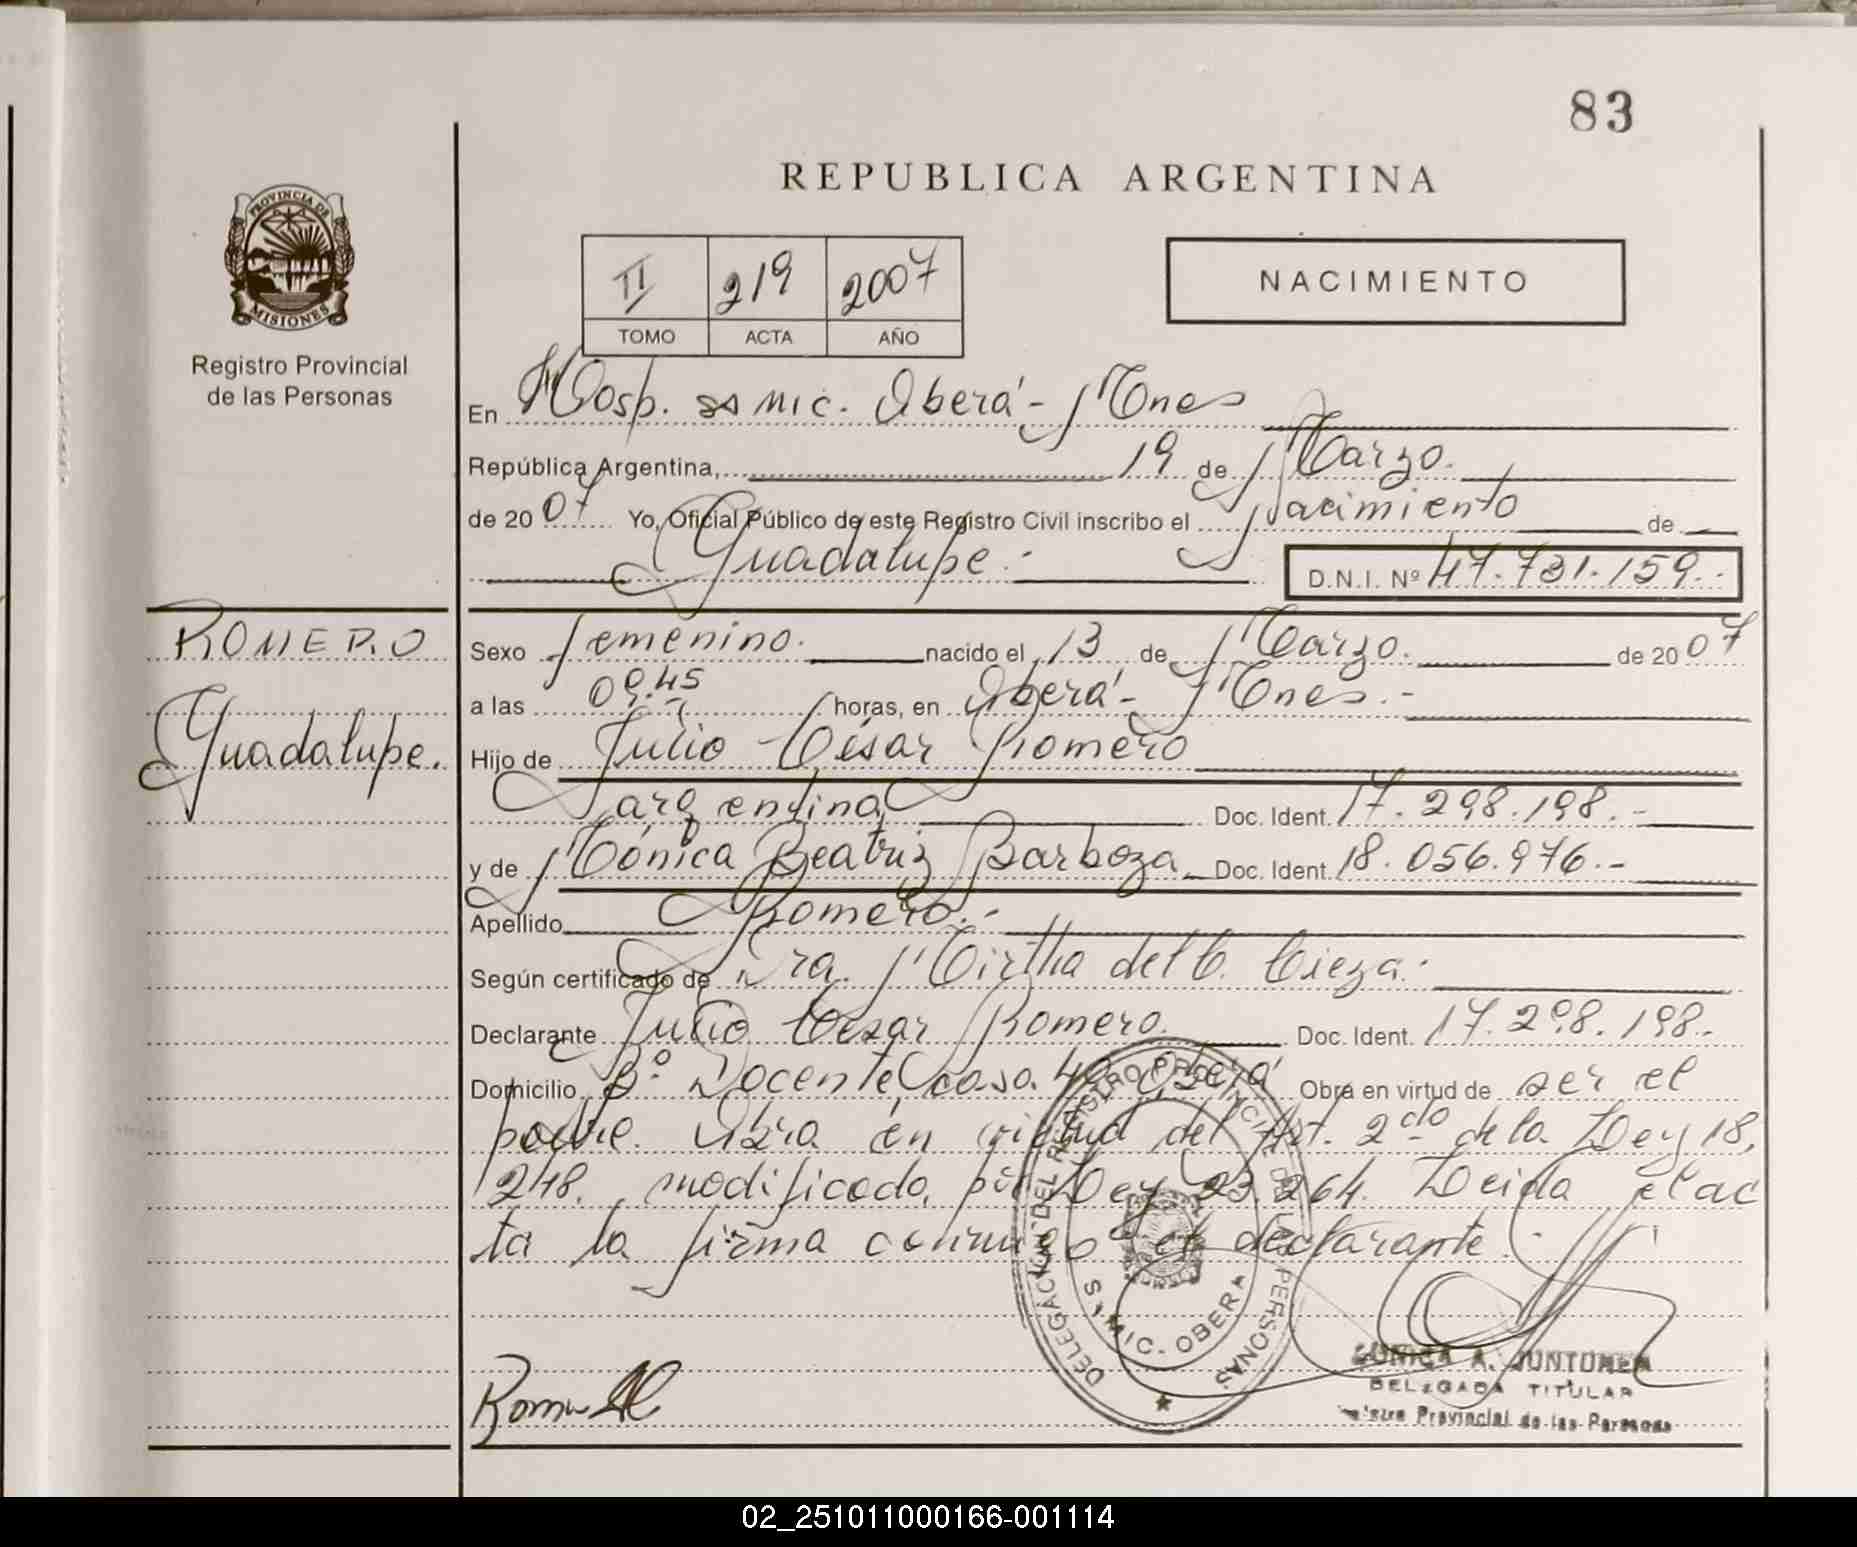 83
REPUBLICA ARGENTINA
PROVINCIA DE
MISIONES
Registro Provincial
de las Personas
II 219 2007
TOMO ACTA AÑO
NACIMIENTO
En Hosp. SAMIC. Oberá - Mnes
República Argentina, 19 de Marzo.
de 2007 Yo, Oficial Público de este Registro Civil inscribo el Nacimiento de
Guadalupe.- D.N.I. Nº 47.731.159.-
ROMERO
Guadalupe.
Sexo femenino. nacido el 13 de Marzo. de 2007
a las 09.45 horas, en Oberá - Mnes.-
Hijo de Julio César Romero
argentina Doc. Ident. 17.298.198.-
y de Mónica Beatriz Barboza Doc. Ident. 18.056.976.-
Apellido Romero.-
Según certificado de Dra. Mirtha del C. Cieza.-
Declarante Julio Cezar Romero. Doc. Ident. 17.298.198.-
Domicilio Bº Docente, casa 40 Oberá Obra en virtud de ser el
padre. Obra en virtud del Art. 2do de la Ley 18,
248, modificada por Ley 23.264. Leida el ac
ta la firma conmigo el declarante.-
DELEGACION DEL REGISTRO PROVINCIAL DE LAS PERSONAS
S.A.MIC. OBERA
A. JUNTUNEN
DELEGADA TITULAR
Registro Provincial de las Personas
02_251011000166-001114